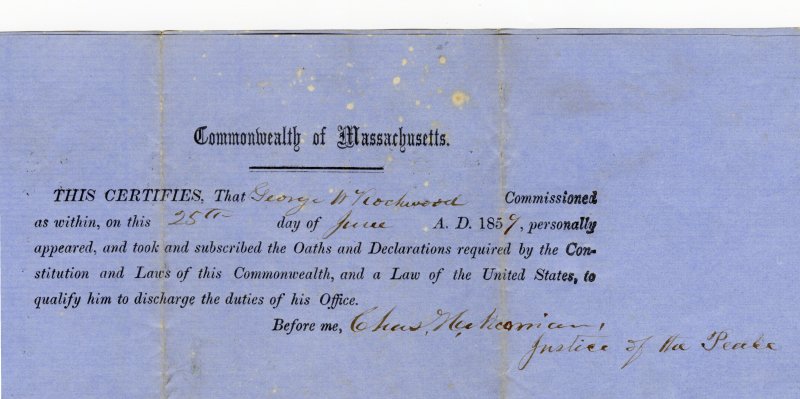 Commonwealth of Massachusetts.
THIS CERTIFIES, That George W Rockwood Commissioned
as within, on this 25th day of June A. D. 1859, personally
appeared, and took and subscribed the Oaths and Declarations required by the Con-
stitution and Laws of this Commonwealth, and a Law of the United States, to
qualify him to discharge the duties of his Office.
Before me, Chas.
Justice of the Peace